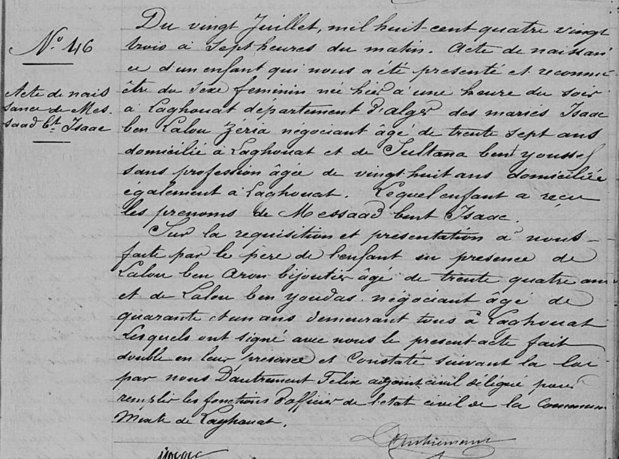 No. 46
Acte de nais
sance de Mes-
saad bt Isaac
Du vingt Juillet, mil huit-cent quatre vingt
trois à Sept heures du matin. Acte de naissan
ce d'un enfant qui nous a été presenté et reconnu
être du Sexe feminin né hier à une heure du soir
à Laghouat département d'alger des mariés Isaac
ben Lalou Zéria négociant âgé de trente sept ans
domicilié à Laghouat et de Sultana bent youssef
sans profession âgée de vingt huit ans domiciliée
également à Laghouat. Lequel enfant a reçu
les prenoms de Messaad bent Isaac.
Sur la requisition et presentation à nous
faite par le père de l'enfant en presence de
Lalou ben Aron bijoutier âgé de trente quatre ans
et de Lalou ben youdas négociant âgé de
quarante et un ans demeurant tous à Laghouat
Lesquels ont signé avec nous le present acte fait
double en leur presence et Constaté suivant la loi
par nous Dautrement Felix adjoint civil délégué pour
remplir les fonctions d'officier de l'etat civil de la Commune
Mixte de Laghouat.